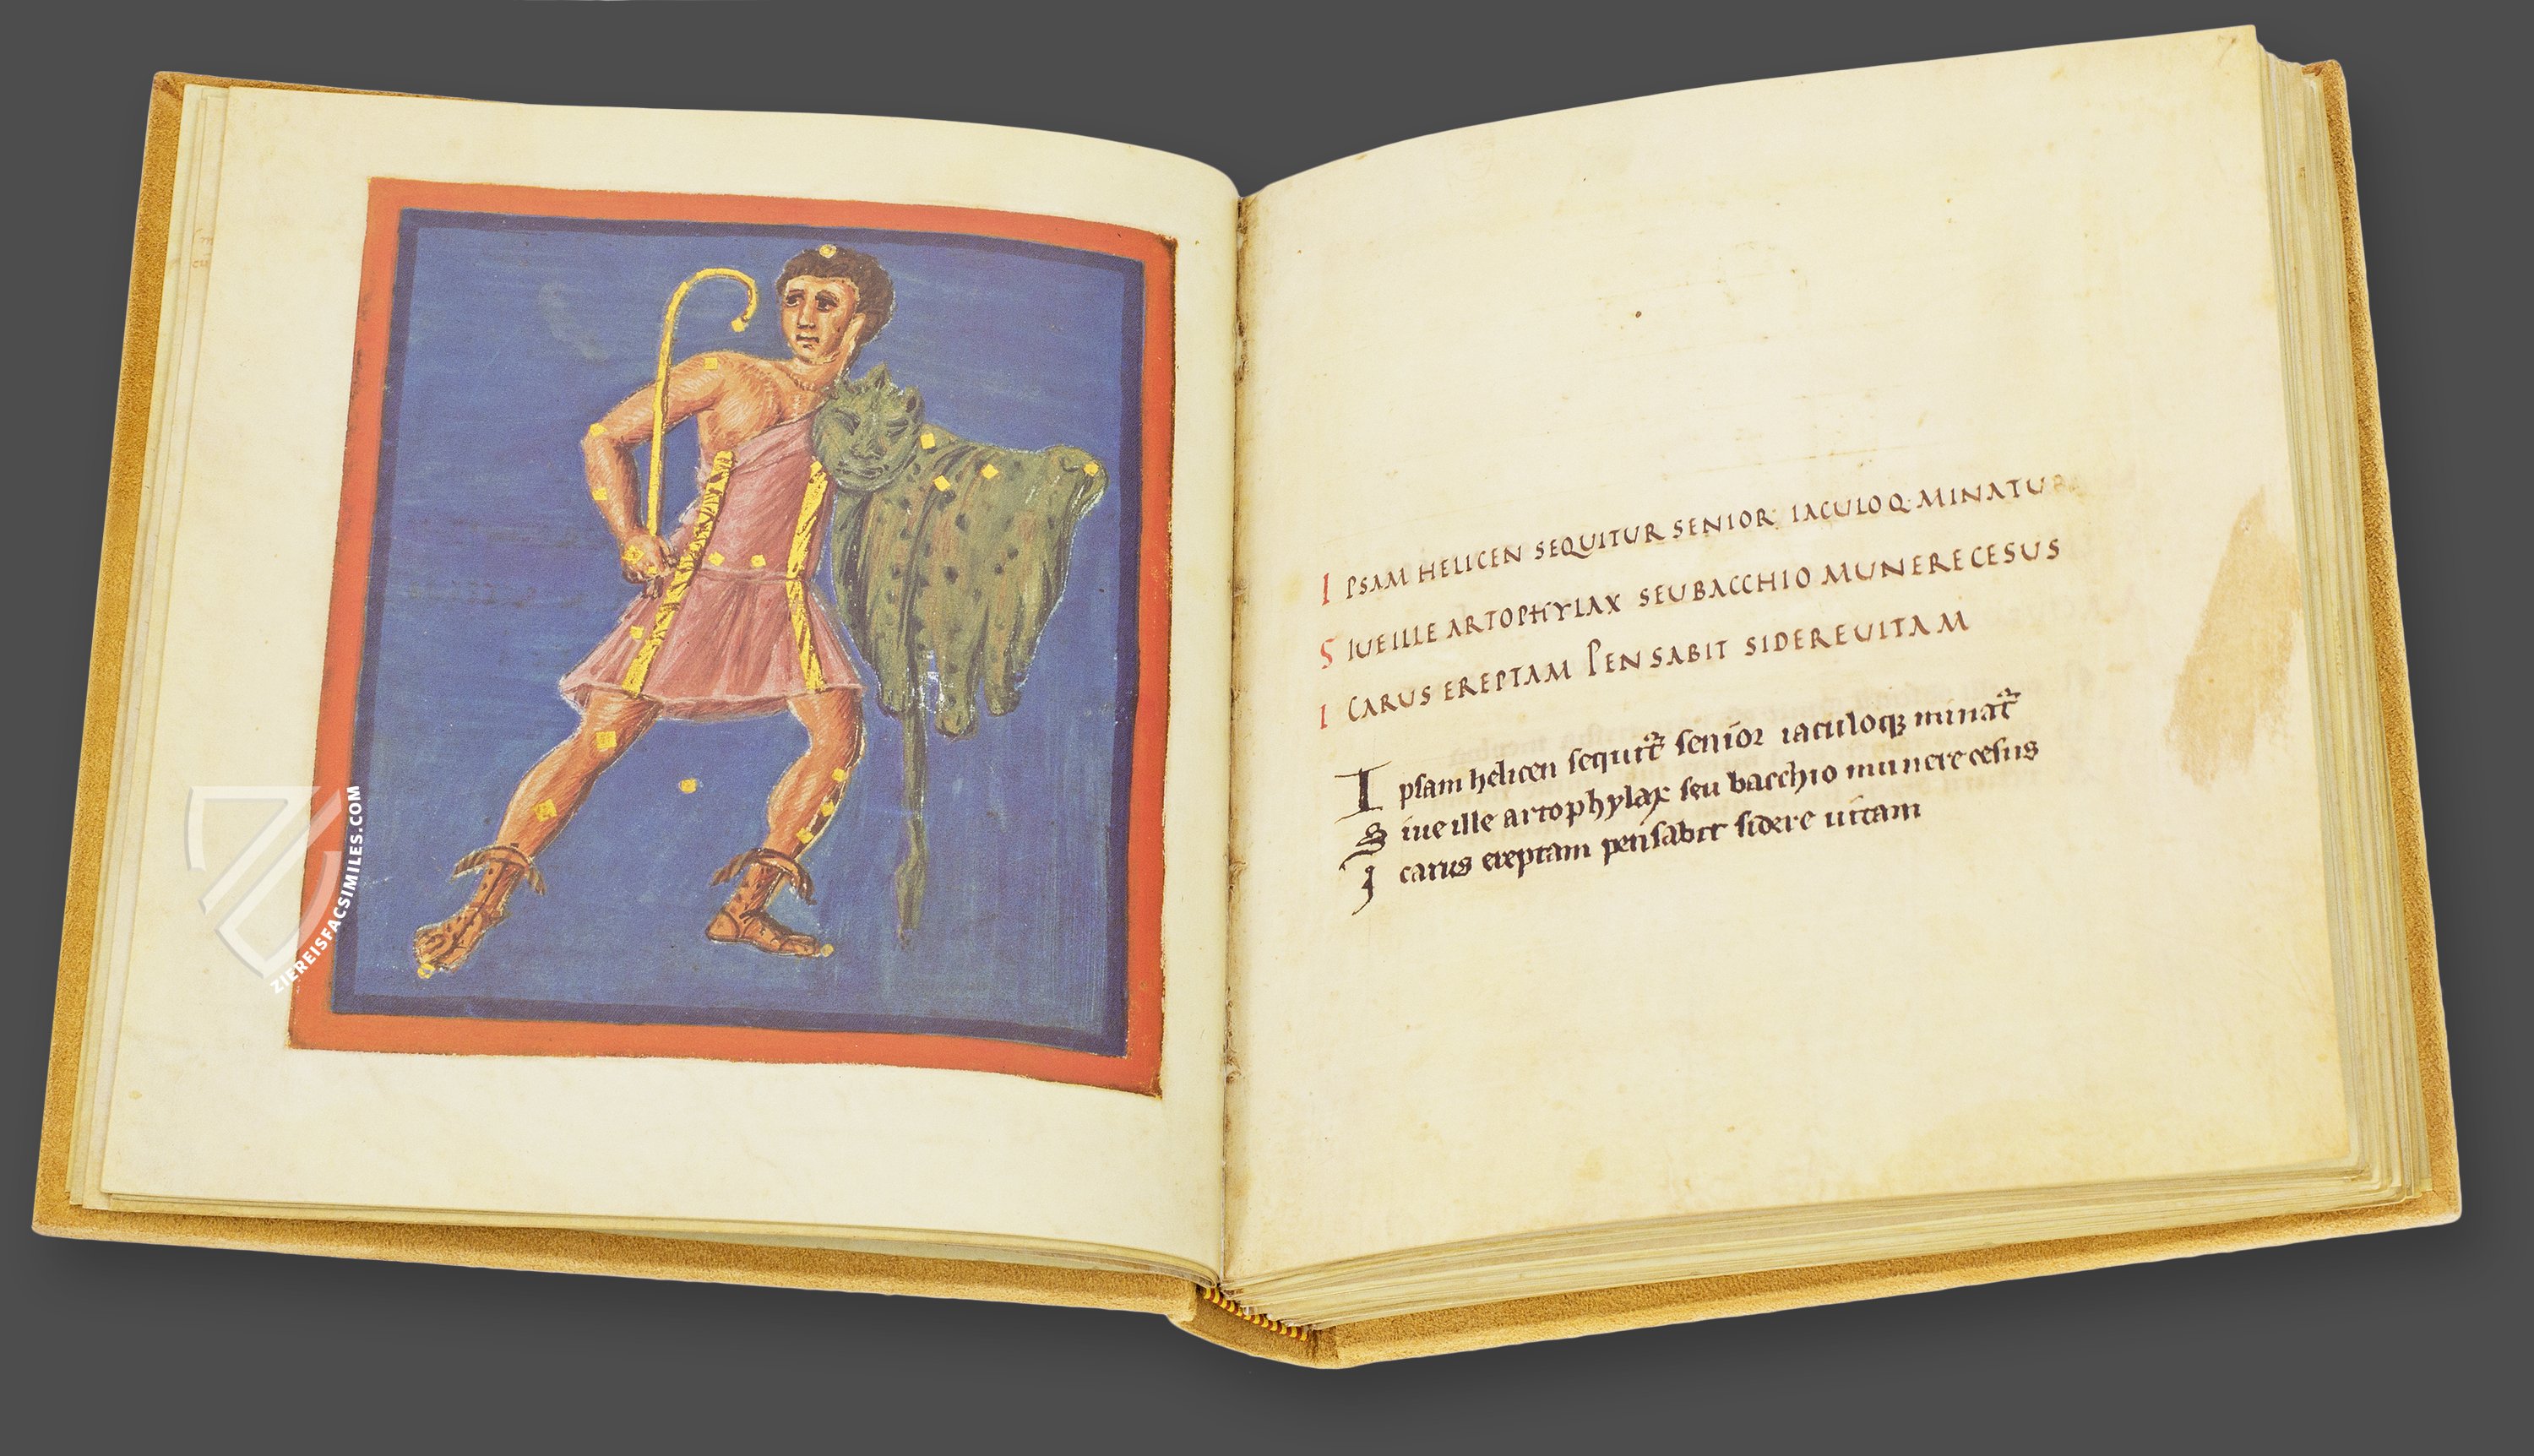 ZIEREISFACSIMILES.COM
I PSAM HELICEN SEQUITUR SENIOR IACULOQ·MINATUR
S IUEILLE ARTOPHYLAX SEUBACCHIO MUNERECESUS
I CARUS EREPTAM PENSABIT SIDEREUITAM
I psam helicen sequit᷑ senior iaculoqꝫ minat᷑
S iue ille artophylax seu bacchio munere cesus
I carus ereptam pensabit sidere uitam